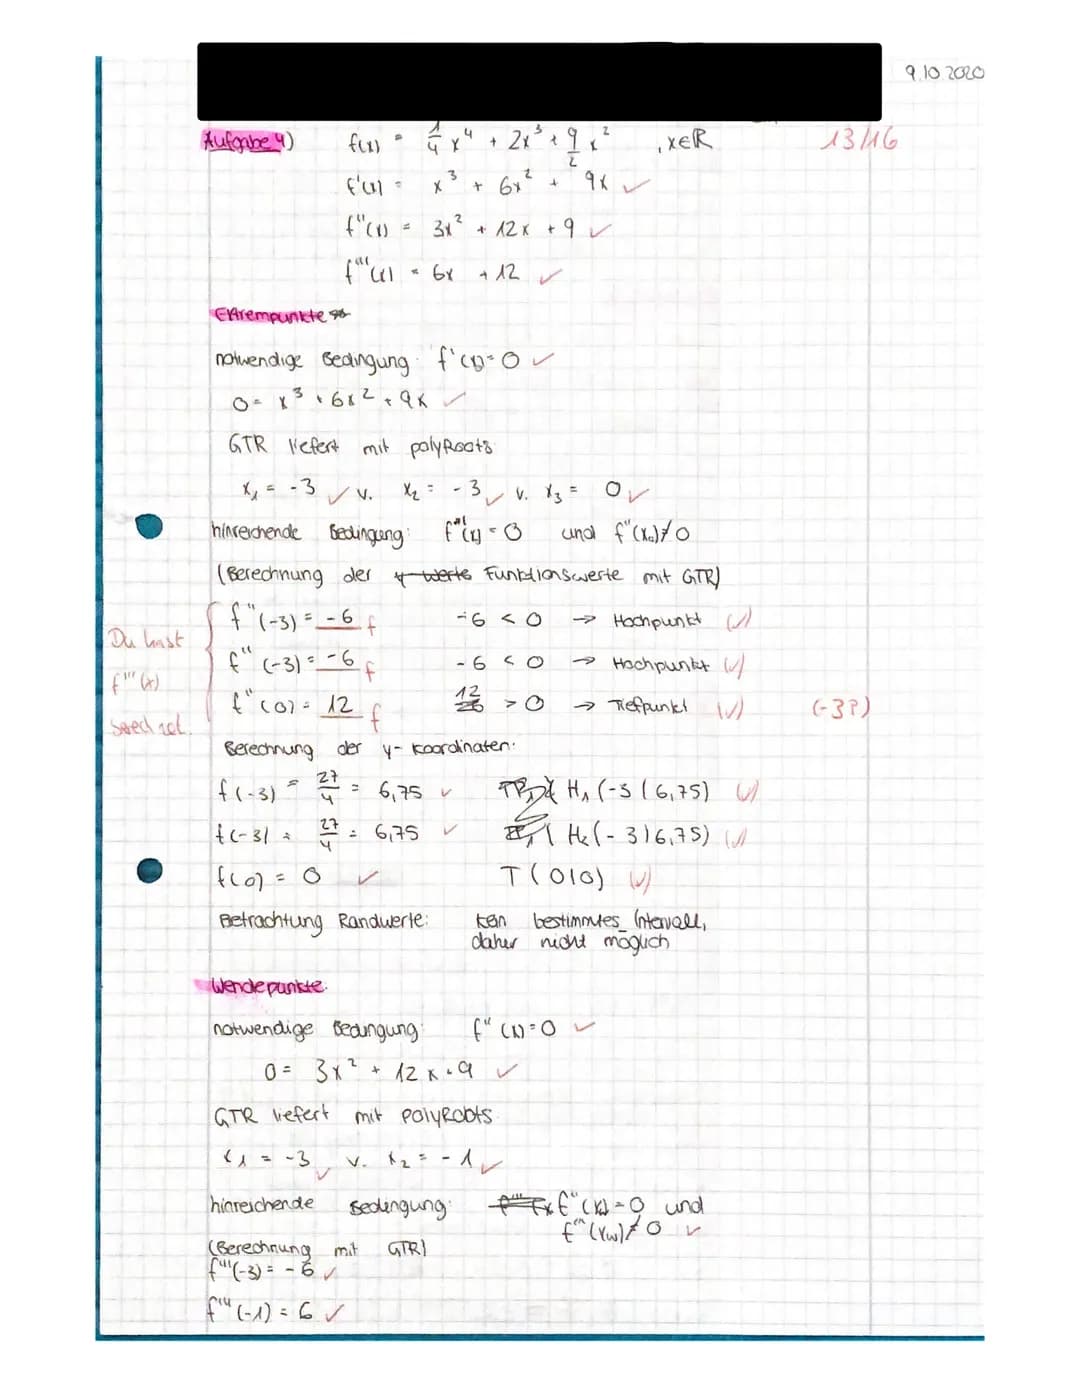 9.10.2020
Aufgabe 4) f(x) = 1/4 x⁴ + 2x³ + 9/2 x² , x∈ℝ 13/16
f'(x) = x³ + 6x² + 9x ✓
f''(x) = 3x² + 12x + 9 ✓
f'''(x) = 6x + 12 ✓
Extrempunkte
notwendige Bedingung: f'(x)=0 ✓
0= x³ + 6x² + 9x ✓
GTR liefert mit polyRoots:
x₁ = -3 ✓ v. x₂ = -3 ✓ v. x₃ = 0 ✓
hinreichende Bedingung: f'(x) = 0 und f''(x₀)≠0
(Berechnung der y-Werte Funktionswerte mit GTR)
f''(-3) = -6 f -6 < 0 → Hochpunkt (✓)
Du hast
f''(-3) = -6 f -6 < 0 → Hochpunkt (✓)
f'''(x)
f''(0) = 12 f 12 > 0 → Tiefpunkt (✓) (-3P)
berechnet.
Berechnung der y-Koordinaten:
f(-3) = 27/4 = 6,75 ✓ H₁ (-3 | 6,75) (✓)
f(-3) = 27/4 = 6,75 ✓ H₂ (-3 | 6,75) (✓)
f(0) = 0 ✓ T (0|0) (✓)
Betrachtung Randwerte: kein bestimmtes Intervall,
daher nicht möglich
Wendepunkte:
notwendige Bedingung: f''(x)=0 ✓
0= 3x² + 12x + 9 ✓
GTR liefert mit polyRoots:
x₁ = -3 ✓ v. x₂ = -1 ✓
hinreichende Bedingung: f''(x)=0 und
f'''(xw)≠0 ✓
(Berechnung mit GTR)
f'''(-3) = -6 ✓
f'''(-1) = 6 ✓